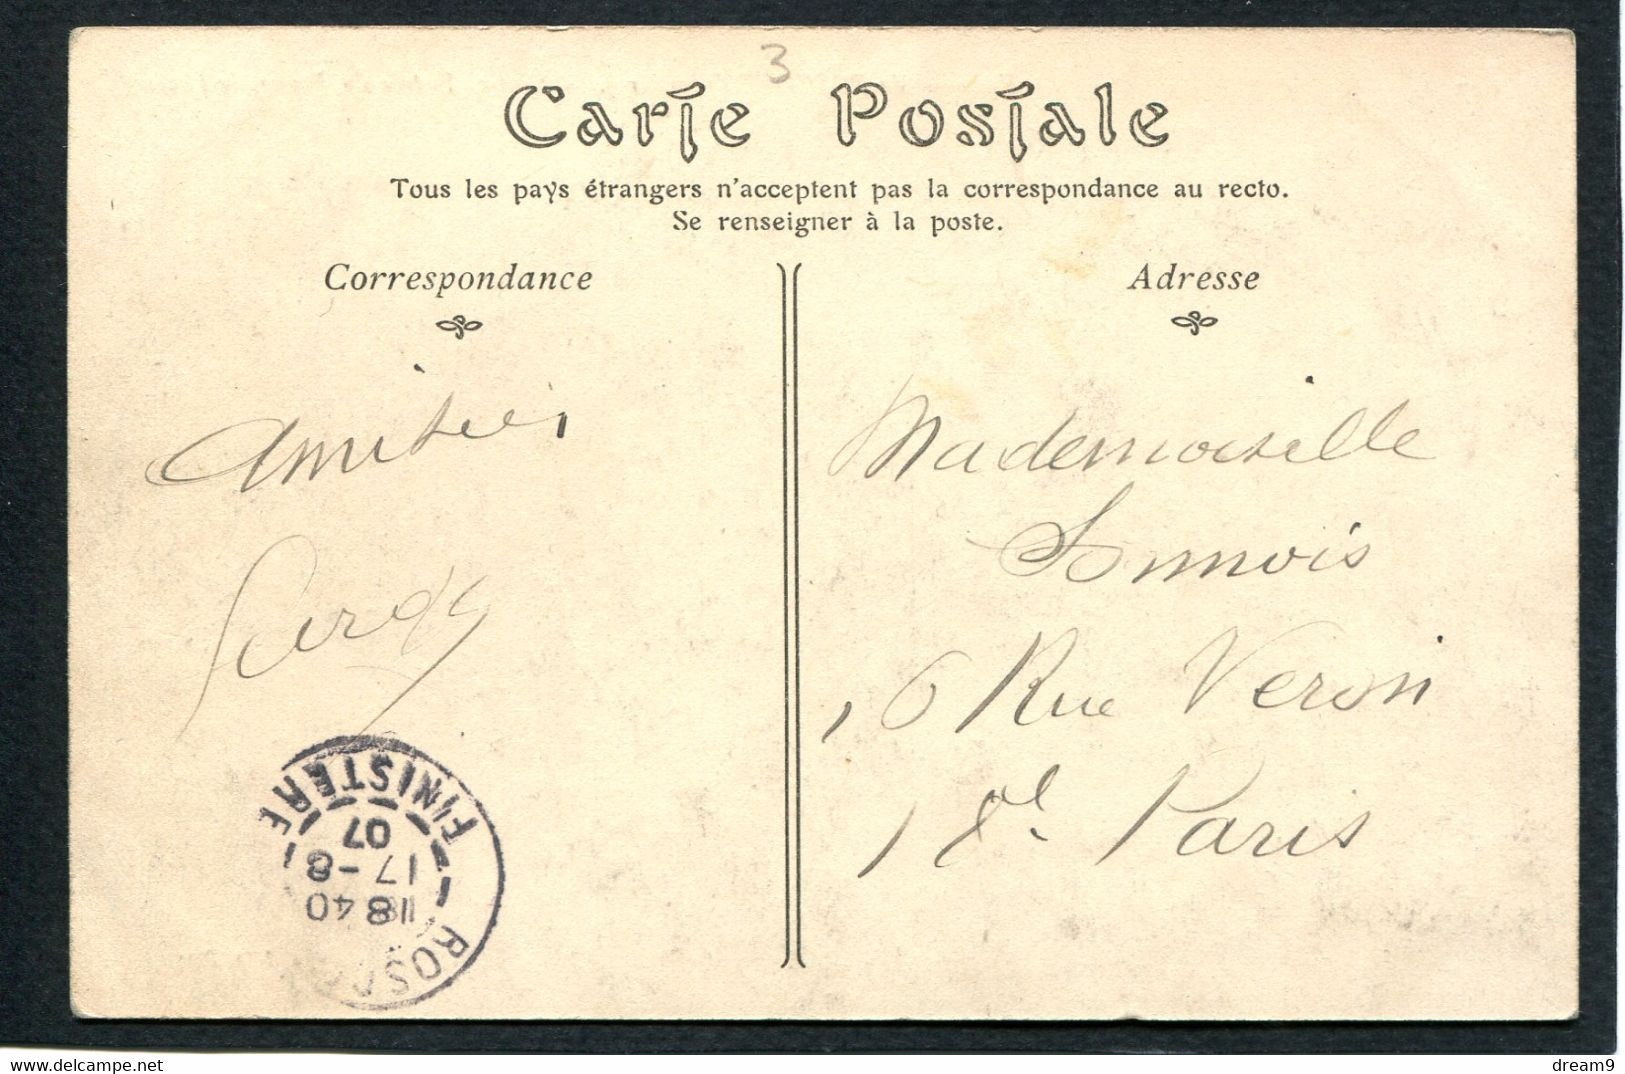 3
Carte Postale
Tous les pays étrangers n'acceptent pas la correspondance au recto.
Se renseigner à la poste.
Correspondance
Adresse
Amitiés
Mademoiselle
16 Rue Veron
18e Paris
FINISTERE
07
17 - 8
18 40
ROSC
delcampe.net
dream9